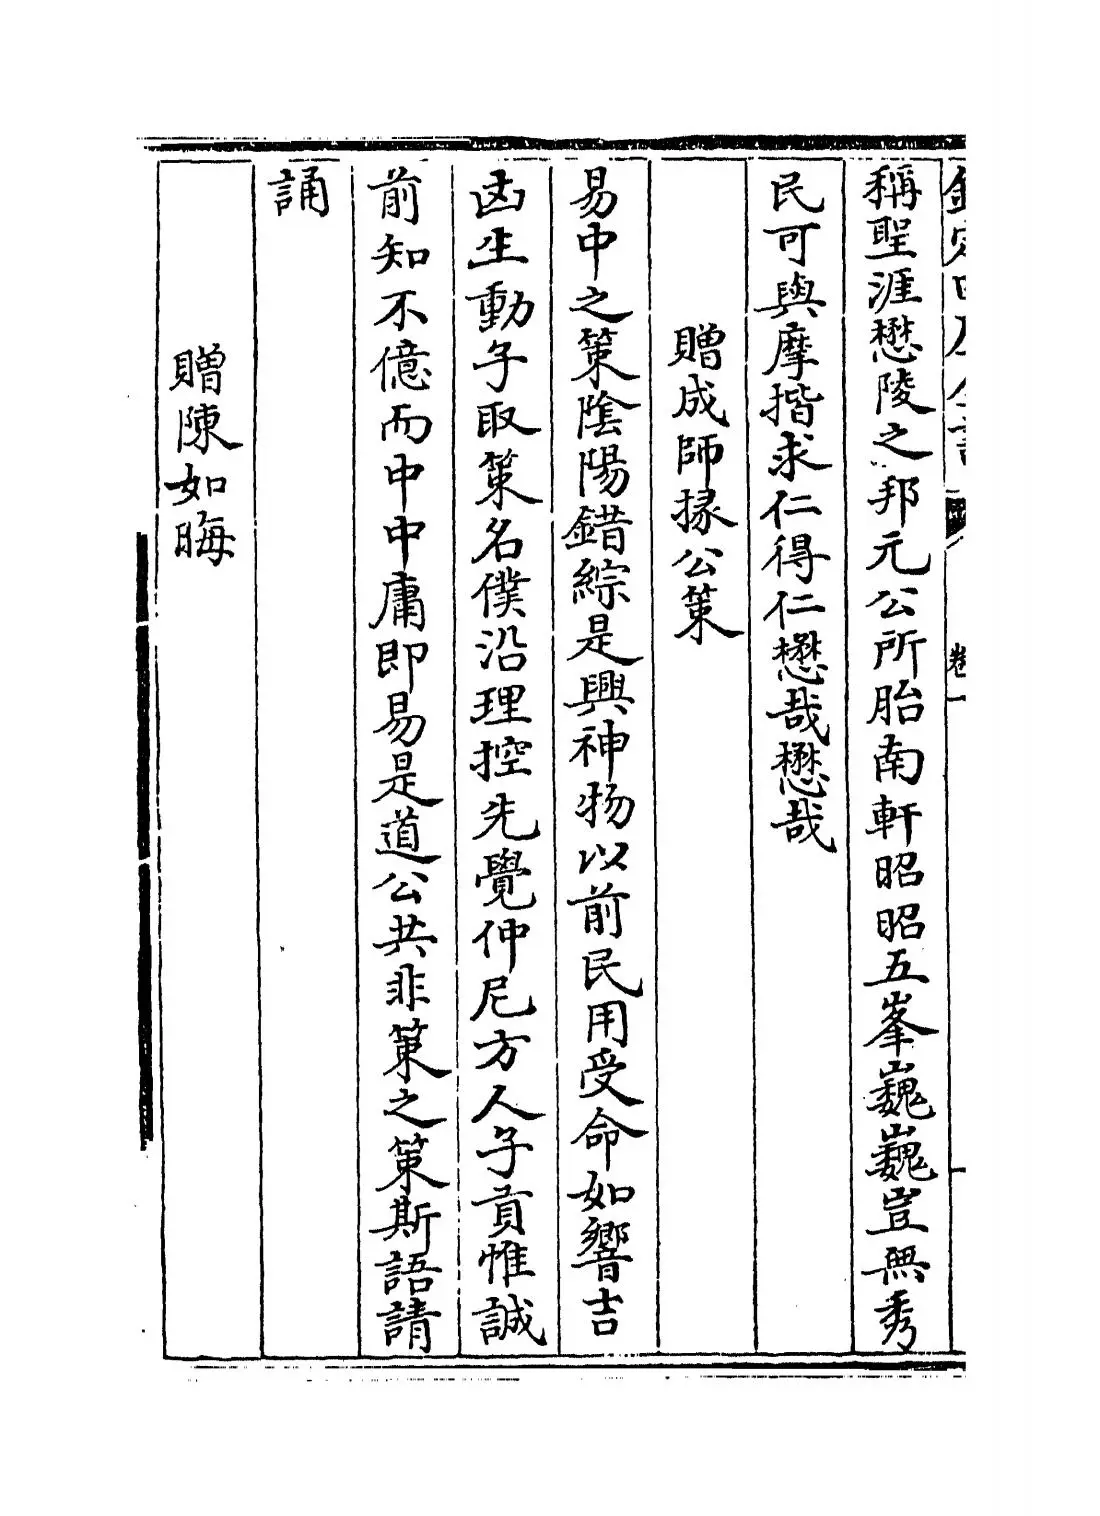 欽定四庫全書
卷一
稱聖涯懋陵之邦元公所胎南軒昭昭五峯巍巍豈無秀
民可與摩揩求仁得仁懋哉懋哉
贈成師掾公策
易中之策陰陽錯綜是興神物以前民用受命如響吉
凶生動子取策名僕沿理控先覺仲尼方人子貢惟誠
前知不億而中中庸即易是道公共非策之策斯語請
誦
贈陳如晦